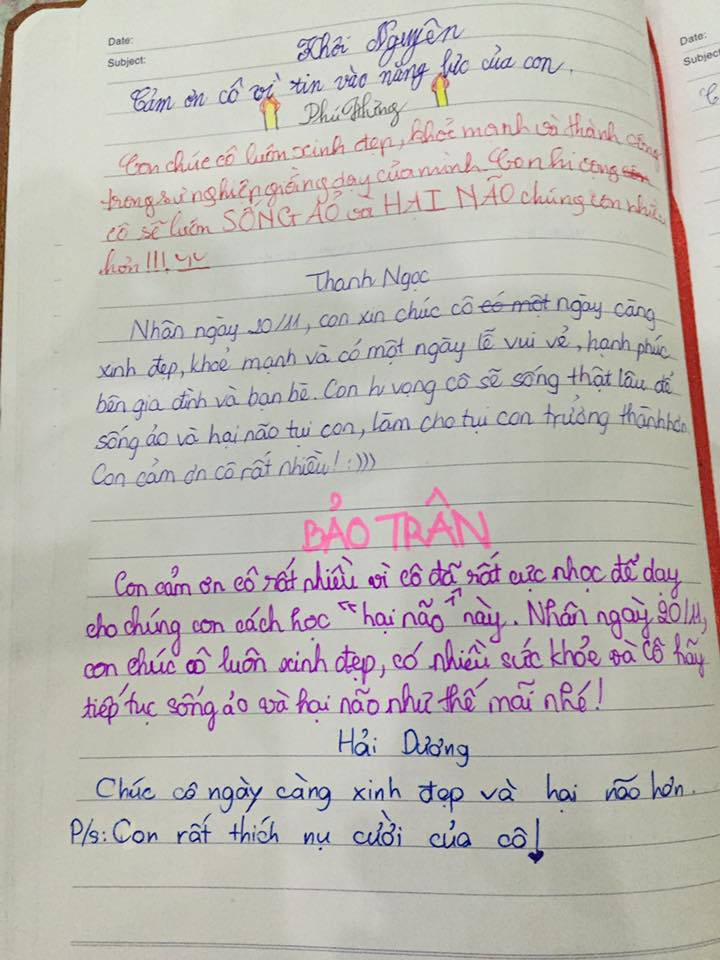 Date:
Subject:
Khôi Nguyên
Cảm ơn cô vì tin vào năng lực của con.
Phú Hưng
Con chúc cô luôn xinh đẹp, khoẻ mạnh và thành công
trong sự nghiệp giảng dạy của mình. Con hi vọng
cô sẽ luôn SỐNG ẢO và HẠI NÃO chúng con nhiều
hơn!!!
Thanh Ngọc
Nhân ngày 20/11, con xin chúc cô có một ngày càng
xinh đẹp, khoẻ mạnh và có một ngày lễ vui vẻ, hạnh phúc
bên gia đình và bạn bè. Con hi vọng cô sẽ sống thật lâu để
sống ảo và hại não tụi con, làm cho tụi con trưởng thành hơn
Con cảm ơn cô rất nhiều! :)))
BẢO TRÂN
Con cảm ơn cô rất nhiều vì cô đã rất cực nhọc để dạy
cho chúng con cách học "hại não" này. Nhân ngày 20/11,
con chúc cô luôn xinh đẹp, có nhiều sức khỏe và cô hãy
tiếp tục sống ảo và hại não như thế mãi nhé!
Hải Dương
Chúc cô ngày càng xinh đẹp và hại não hơn.
P/s: Con rất thích nụ cười của cô!
Date:
Subject